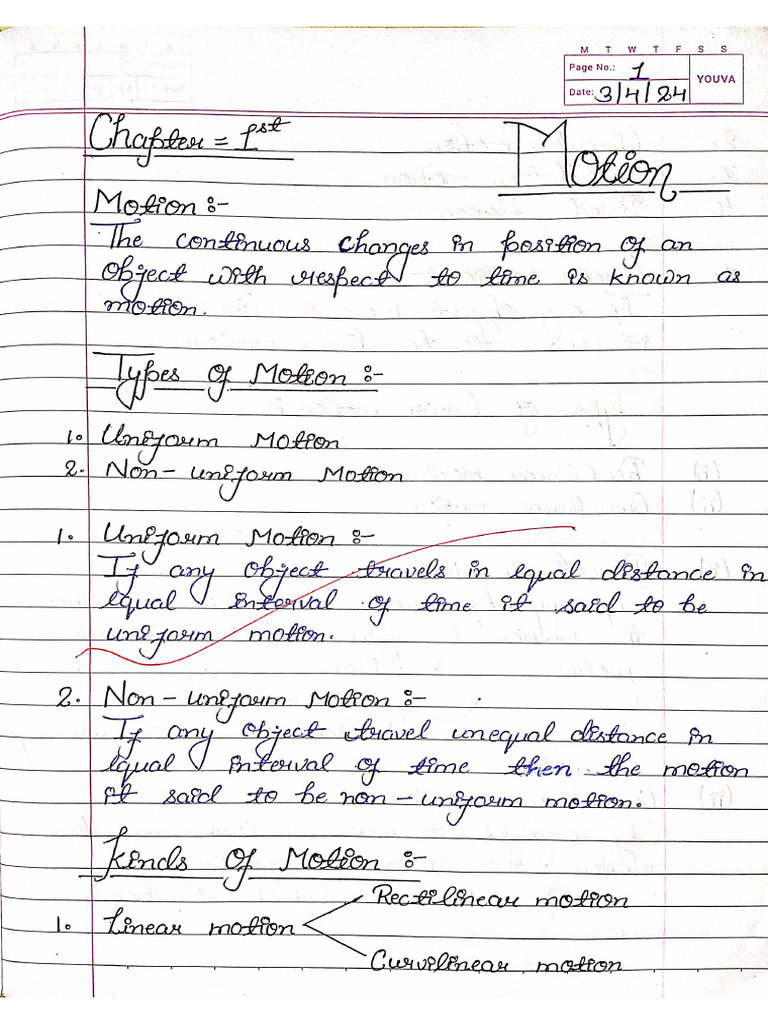 M T W T F S S
Page No.: 1
Date: 3/4/24
YOUVA
Chapter = 1st
Motion
Motion :-
The continuous changes in position of an
object with respect to time is known as
motion.
Types of Motion :-
1. Uniform Motion
2. Non-uniform Motion
1. Uniform Motion :-
If any object travels in equal distance in
equal interval of time it said to be
uniform motion.
2. Non-uniform Motion :-
If any object travel unequal distance in
equal interval of time then the motion
it said to be non-uniform motion.
Kinds of Motion :-
Rectilinear motion
1. Linear motion
Curvilinear motion